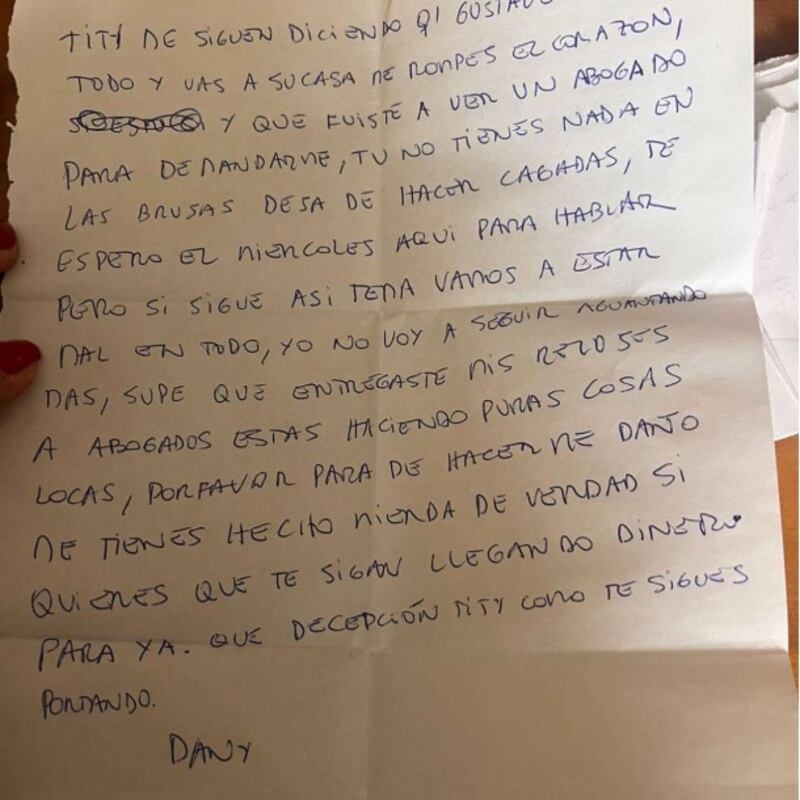 TITY ME SIGUEN DICIENDO QI
TODO Y VAS A SU CASA ME ROMPES EL CORAZON,
Y QUE FUISTE A VER UN ABOGADO
PARA DEMANDARME, TU NO TIENES NADA EN
LAS BRUJAS DEJA DE HACER CAGADAS, TE
ESPERO EL MIERCOLES AQUI PARA HABLAR
PERO SI SIGUE ASI TEMA VAMOS A ESTAR
MAL EN TODO, YO NO VOY A SEGUIR AGUANTANDO
MAS, SUPE QUE ENTREGASTE MIS RELOJES
A ABOGADOS ESTAS HACIENDO PURAS COSAS
LOCAS, PORFAVOR PARA DE HACERME DAÑO
ME TIENES HECHO MIERDA DE VERDAD SI
QUIERES QUE TE SIGAN LLEGANDO DINERO
PARA YA. QUE DECEPCIÓN TITY COMO TE SIGUES
PORTANDO.
DANY